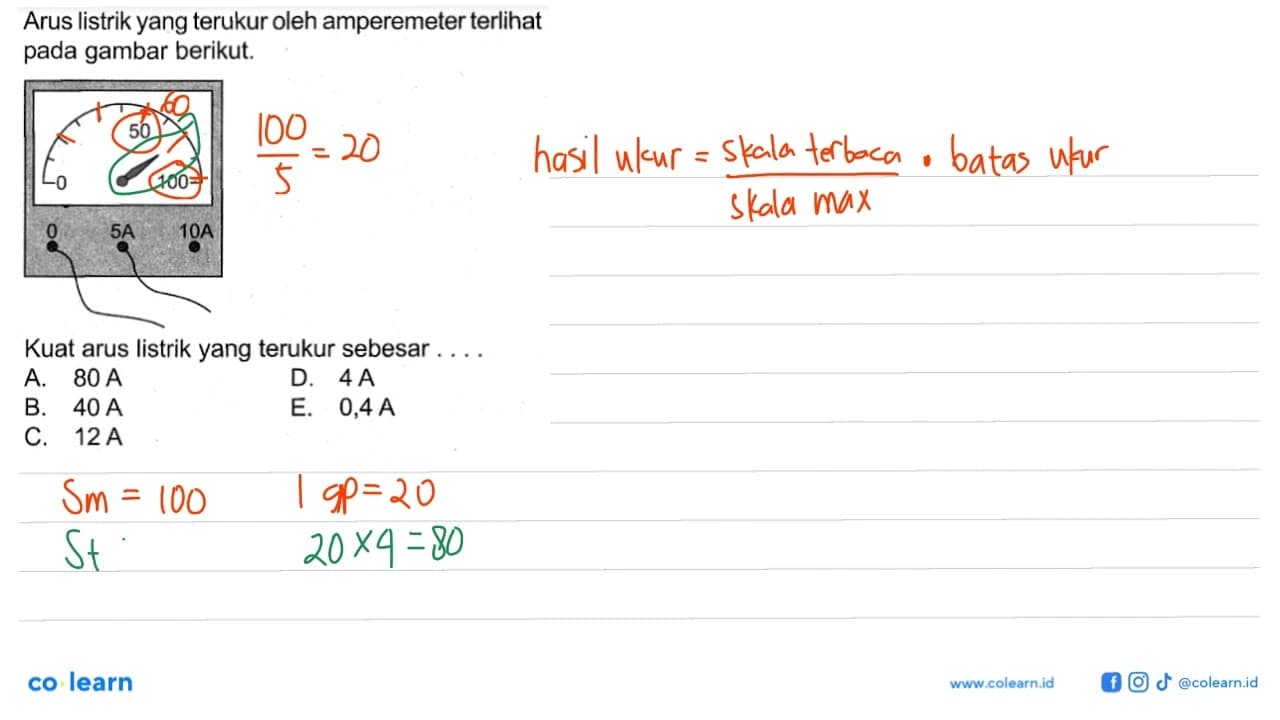 Arus listrik yang terukur oleh amperemeter terlihat
pada gambar berikut.
60
50
0
100
0 5A 10A
100/5 = 20
hasil ukur = skala terbaca/skala max . batas ukur
Kuat arus listrik yang terukur sebesar . . . .
A. 80 A
B. 40 A
C. 12 A
D. 4 A
E. 0,4 A
Sm = 100
1 gp = 20
St
20 x 4 = 80
co learn
www.colearn.id
@colearn.id